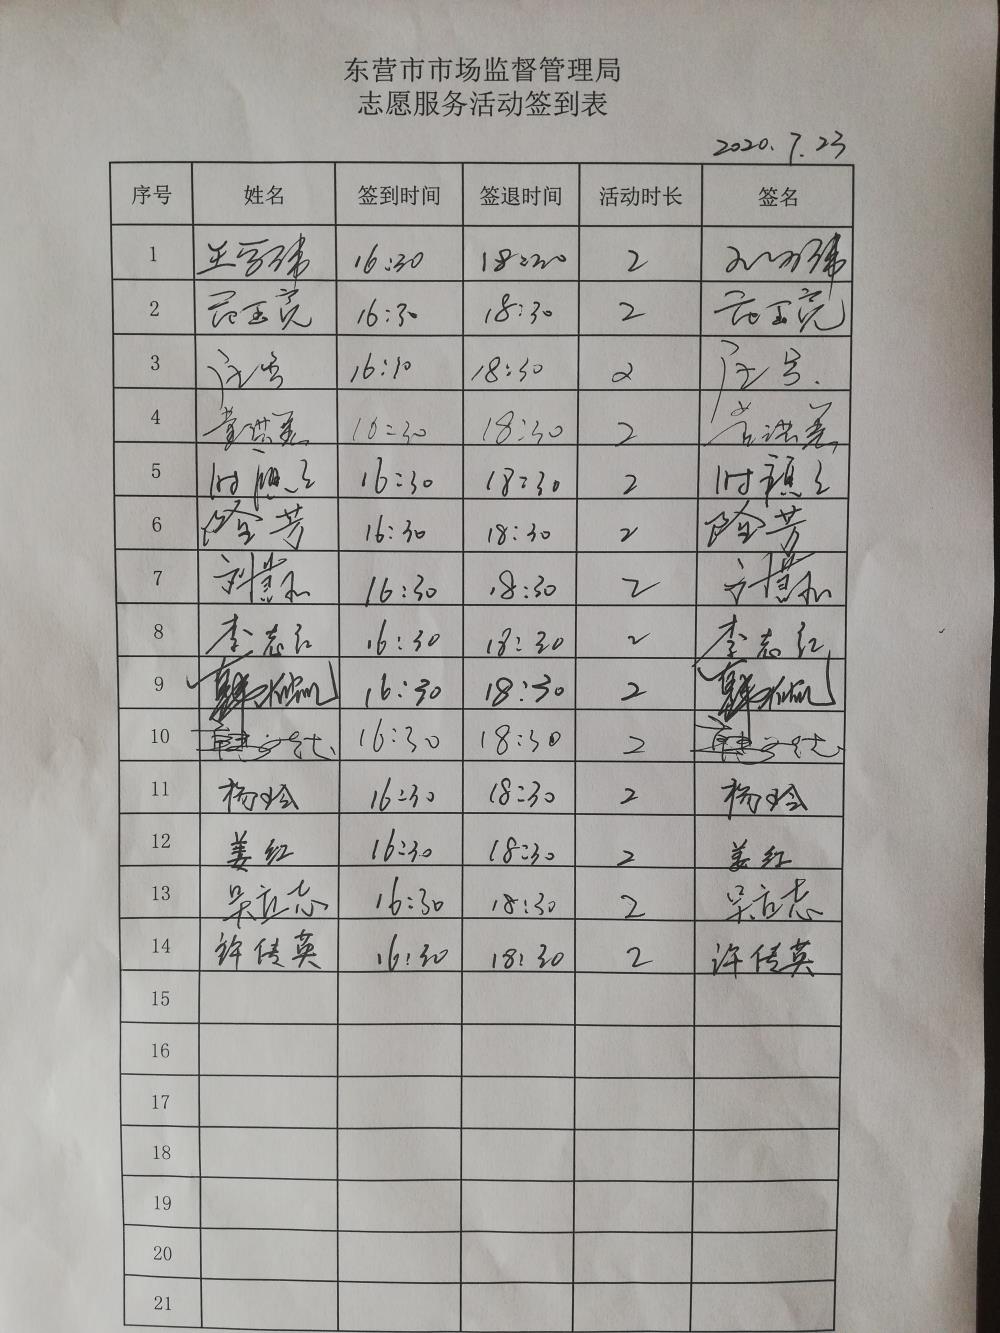 东营市市场监督管理局
志愿服务活动签到表
2020.7.23
序号 姓名 签到时间 签退时间 活动时长 签名
1 16:30 18:30 2
2 范玉亮 16:30 18:30 2 范玉亮
3 16:30 18:30 2
4 16:30 18:30 2
5 16:30 18:30 2
6 徐芳 16:30 18:30 2 徐芳
7 16:30 18:30 2
8 李志红 16:30 18:30 2 李志红
9 16:30 18:30 2
10 16:30 18:30 2
11 杨玲 16:30 18:30 2 杨玲
12 姜红 16:30 18:30 2 姜红
13 吴立志 16:30 18:30 2 吴立志
14 许传英 16:30 18:30 2 许传英
15
16
17
18
19
20
21